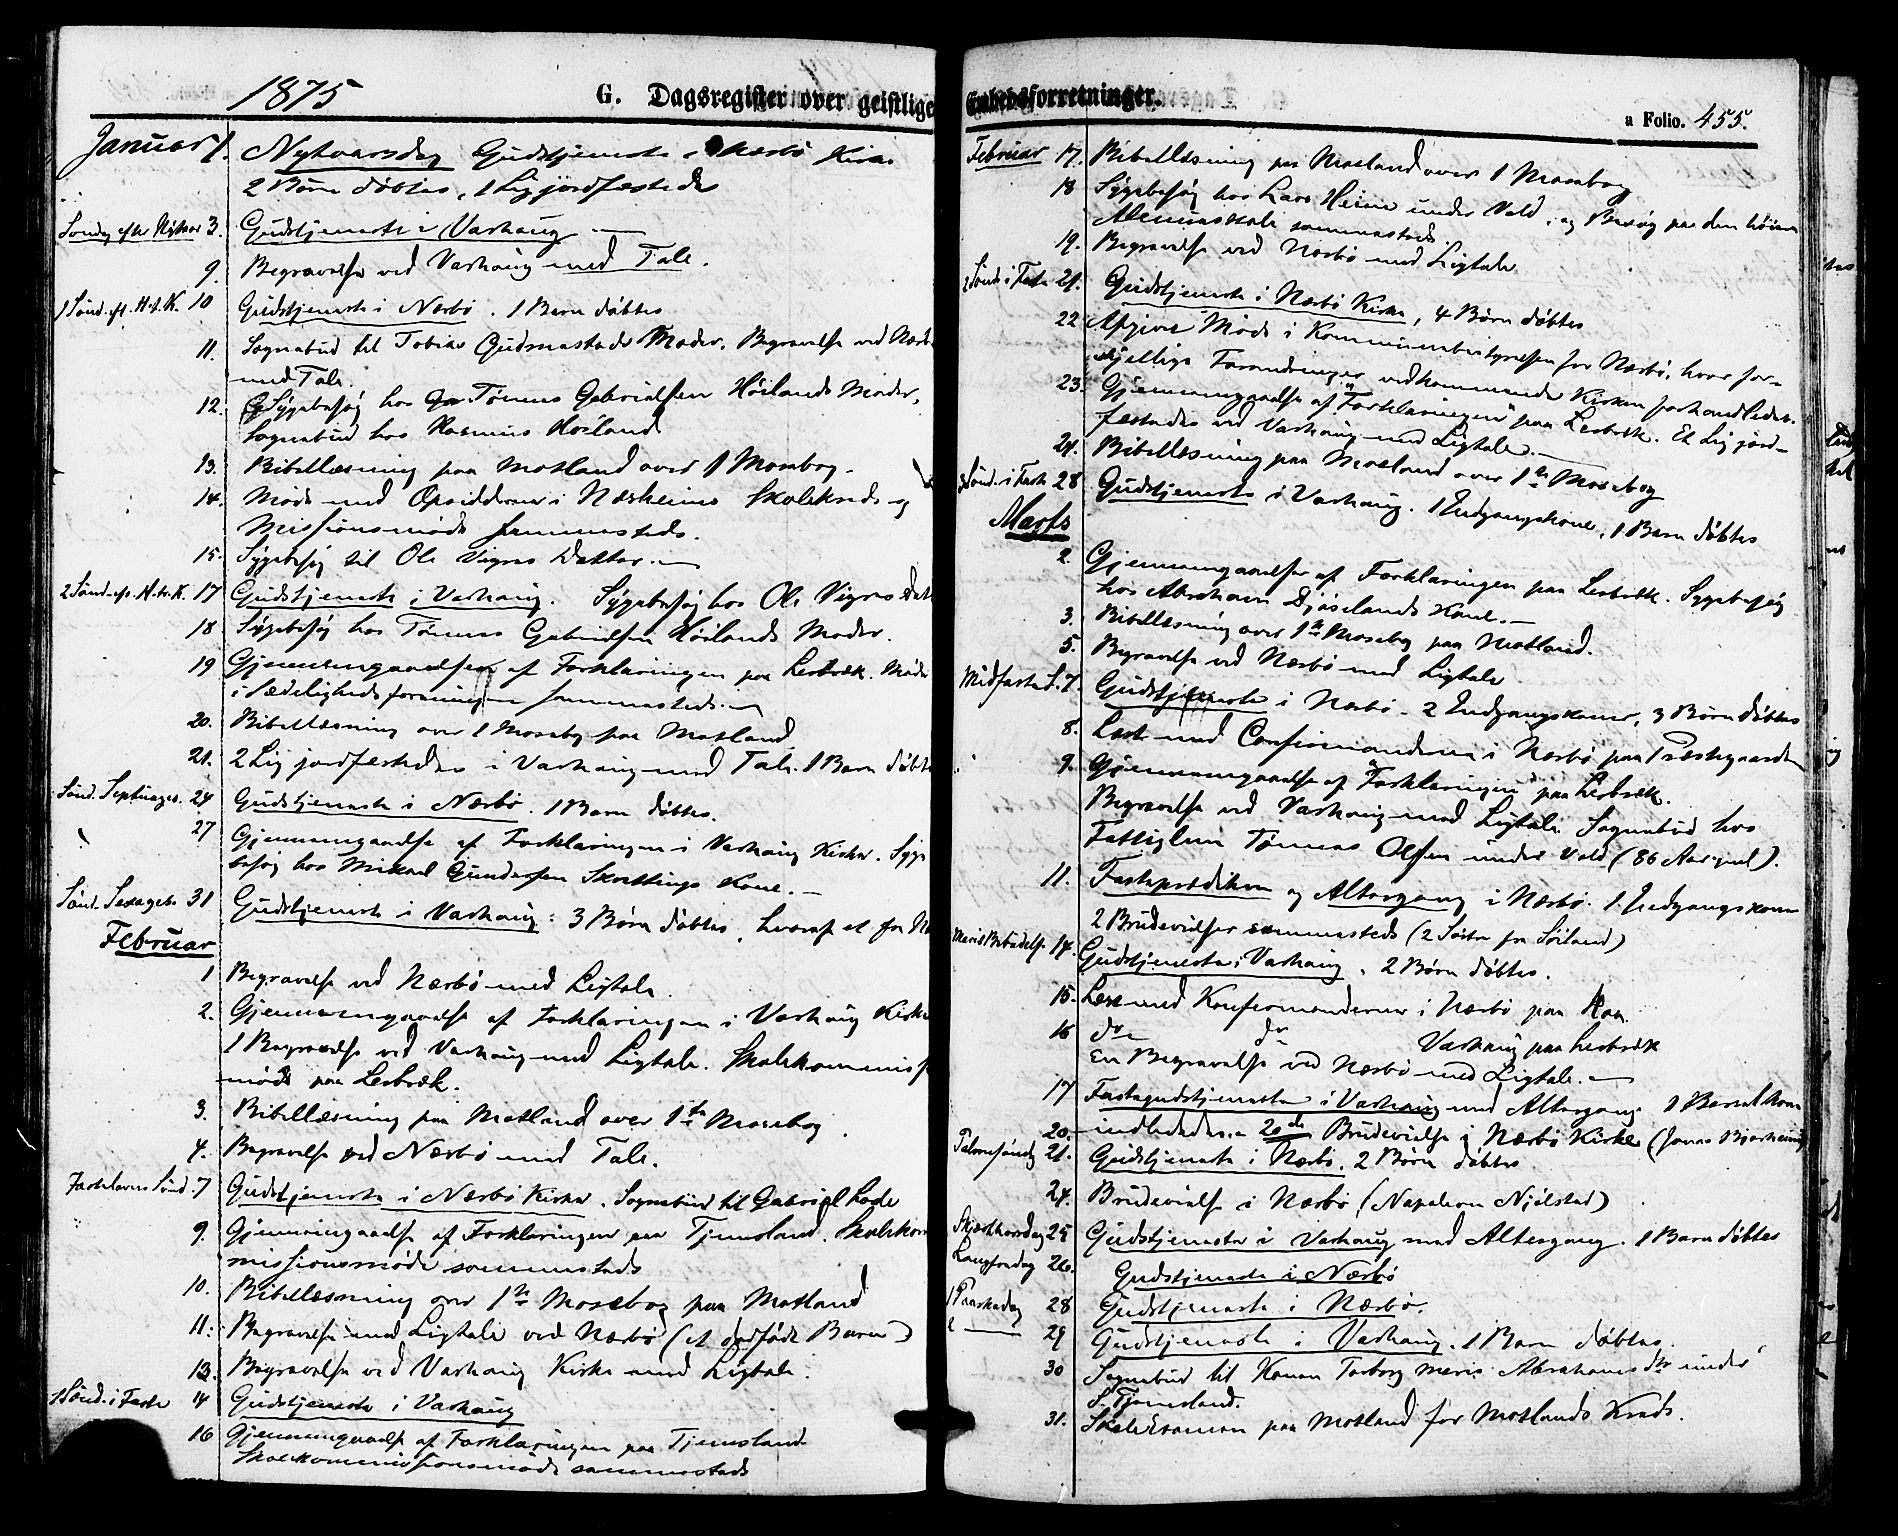 1875 G. Dagsregister over geistlige
Januar 1. Nytaarsdag Gudstjeneste i Nærbø Kirke
2 Børn døbtes, 1 Lig jordfæstedes
Søndag efter Nytaar 3. Gudstjeneste i Varhaug
9. Begravelse ved Varhaug med Tale.
1 Sønd. eft. H.t.K. 10 Gudstjeneste i Nærbø. 1 Barn døbtes
11. Sognebud til Tobias Gudmestads Moder. Begravelse ved Nærb
med Tale.
12. Sygebesøg hos Tønnes Gabrielsen Høilands Moder,
Sognebud hos Rasmus Høiland
13. Bibellæsning paa Motland over 1 Mosebog.
14. Møde med Opsidderne i Næsheims Skolekreds og
Missionsmøde sammesteds.
15. Sygebesøg til Ole Vigres Datter.
2 Sønd. ef. H.t.K. 17 Gudstjeneste i Varhaug. Sygebesøg hos Ole Vigres Dat
18 Sygebesøg hos Tønnes Gabrielsen Høilands Moder.
19 Gjennemgaaelse af Forklaringen paa Lerbræk. Møde
i Sædelighedsforeningen sammesteds.
20. Bibellæsning over 1 Moseb paa Motland
21. 2 Lig jordfæstedes i Varhaug med Tale. 1 Barn døbte
Sønd. Septuages. 24 Gudstjeneste i Nærbø. 1 Barn døbtes.
27 Gjennemgaaelse af Forklaringen i Varhaug Kirke. Syge
besøg hos Mikael Gundersen Skrettings Kone.
Sønd. Sexages. 31 Gudstjeneste i Varhaug: 3 Børn døbtes, hvoraf et fra N
Februar
1 Begravelse ved Nærbø med Ligtale.
2. Gjennemgaaelse af Forklaringen i Varhaug Kirke
1 Begravelse ved Varhaug med Ligtale. Skolekommis
møde paa Lerbræk.
3. Bibellæsning paa Motland over 1ste Mosebog.
4. Begravelse ved Nærbø med Tale.
Fastelavns Sønd. 7 Gudstjeneste i Nærbø Kirke. Sognebud til Gabriel Lode
9. Gjennemgaaelse af Forklaringen paa Tjemsland. Skolekom
missionsmøde sammesteds
10. Bibellæsning over 1ste Mosebog paa Motland
11. Begravelse med Ligtale ved Nærbø (et dødfødt Barn)
13. Begravelse ved Varhaug Kirke med Ligtale.
1 Sønd. i Faste 14 Gudstjeneste i Varhaug
16 Gjennemgaaelse af Forklaringen paa Tjemsland
Skolekommissionsmøde sammesteds
Enkeltforretninger.
a Folio. 455.
Februar 17. Bibellæsning paa Motland over 1 Mosebog
18 Sygebesøg hos Lars Heime under Vold, og Besøg paa den høiere
Almueskole sammesteds.
19. Begravelse ved Nærbø med Ligtale
2 Sønd. i Faste 21. Gudstjeneste i Nærbø Kirke, 4 Børn døbtes
22 Møde i Kommunebestyrelsen for Nærbø, hvor for-
skjellige Forandringer vedkommende Kirken forhandledes.
23. Gjennemgaaelse af "Forklaringen" paa Lerbræk. Et Lig jord-
fæstedes ved Varhaug med Ligtale.
24. Bibellæsning paa Motland over 1ste Mosebog
3 Sønd. i Faste 28 Gudstjeneste i Varhaug. 1 Indgangskone, 1 Barn døbtes
Marts
2. Gjennemgaaelse af Forklaringen paa Lerbræk. Sygebesøg
hos Abraham Djøselands Kone.
3. Bibellæsning over 1ste Mosebog paa Motland.
5. Begravelse ved Nærbø med Ligtale
Midfaste S. 7. Gudstjeneste i Nærbø. 2 Indgangskoner, 3 Børn døbtes
8. Læst med Confirmanderne i Nærbø paa Præstegaarden
9. Gjennemgaaelse af "Forklaringen" paa Lerbræk.
Begravelse ved Varhaug med Ligtale. Sognebud hos
Fattiglem Tønnes Olsen under Vold (86 Aar gml).
11. Fasteprædiken og Altergang i Nærbø. 1 Indgangskone
2 Brudevielser sammesteds (2 Søstre fra Søiland)
Mariæ Bebudelse 14. Gudstjeneste i Varhaug. 2 Børn døbtes.
15. Læse med Konfirmanderne i Nærbø paa Haa.
16 do do Varhaug paa Lerbræk
En Begravelse ved Nærbø med Ligtale.
17 Fastegudstjeneste i Varhaug med Altergang. 1 Barselkone
indlededes.
20. 2de Brudevielse i Nærbø Kirke (Jonas Bjorheim)
Palmesøndag 21. Gudstjeneste i Nærbø. 2 Børn døbtes
24. Brudevielse i Nærbø (Napoleon Njølstad)
Skjærthorsdag 25 Gudstjeneste i Varhaug med Altergang. 1 Barn døbtes
Langfredag 26. Gudstjeneste i Nærbø
1 Paaskedag 28 Gudstjeneste i Nærbø.
2 — 29 Gudstjeneste i Varhaug. 1 Barn døbtes.
30 Sognebud til Konen Torborg Marie Abrahamsdtr under
S. Tjemsland.
31. Skoleexamen paa Motland for Motlands Kreds.